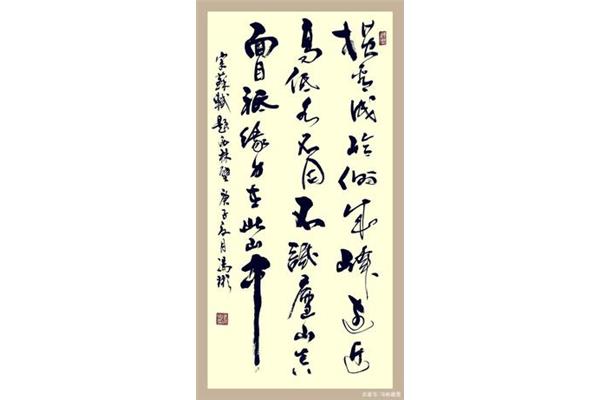 横看成岭側成峰遠近
高低各不同不識廬山真
面目祇緣身在此山中
宋蘇軾題西林壁庚子夏月馮彬